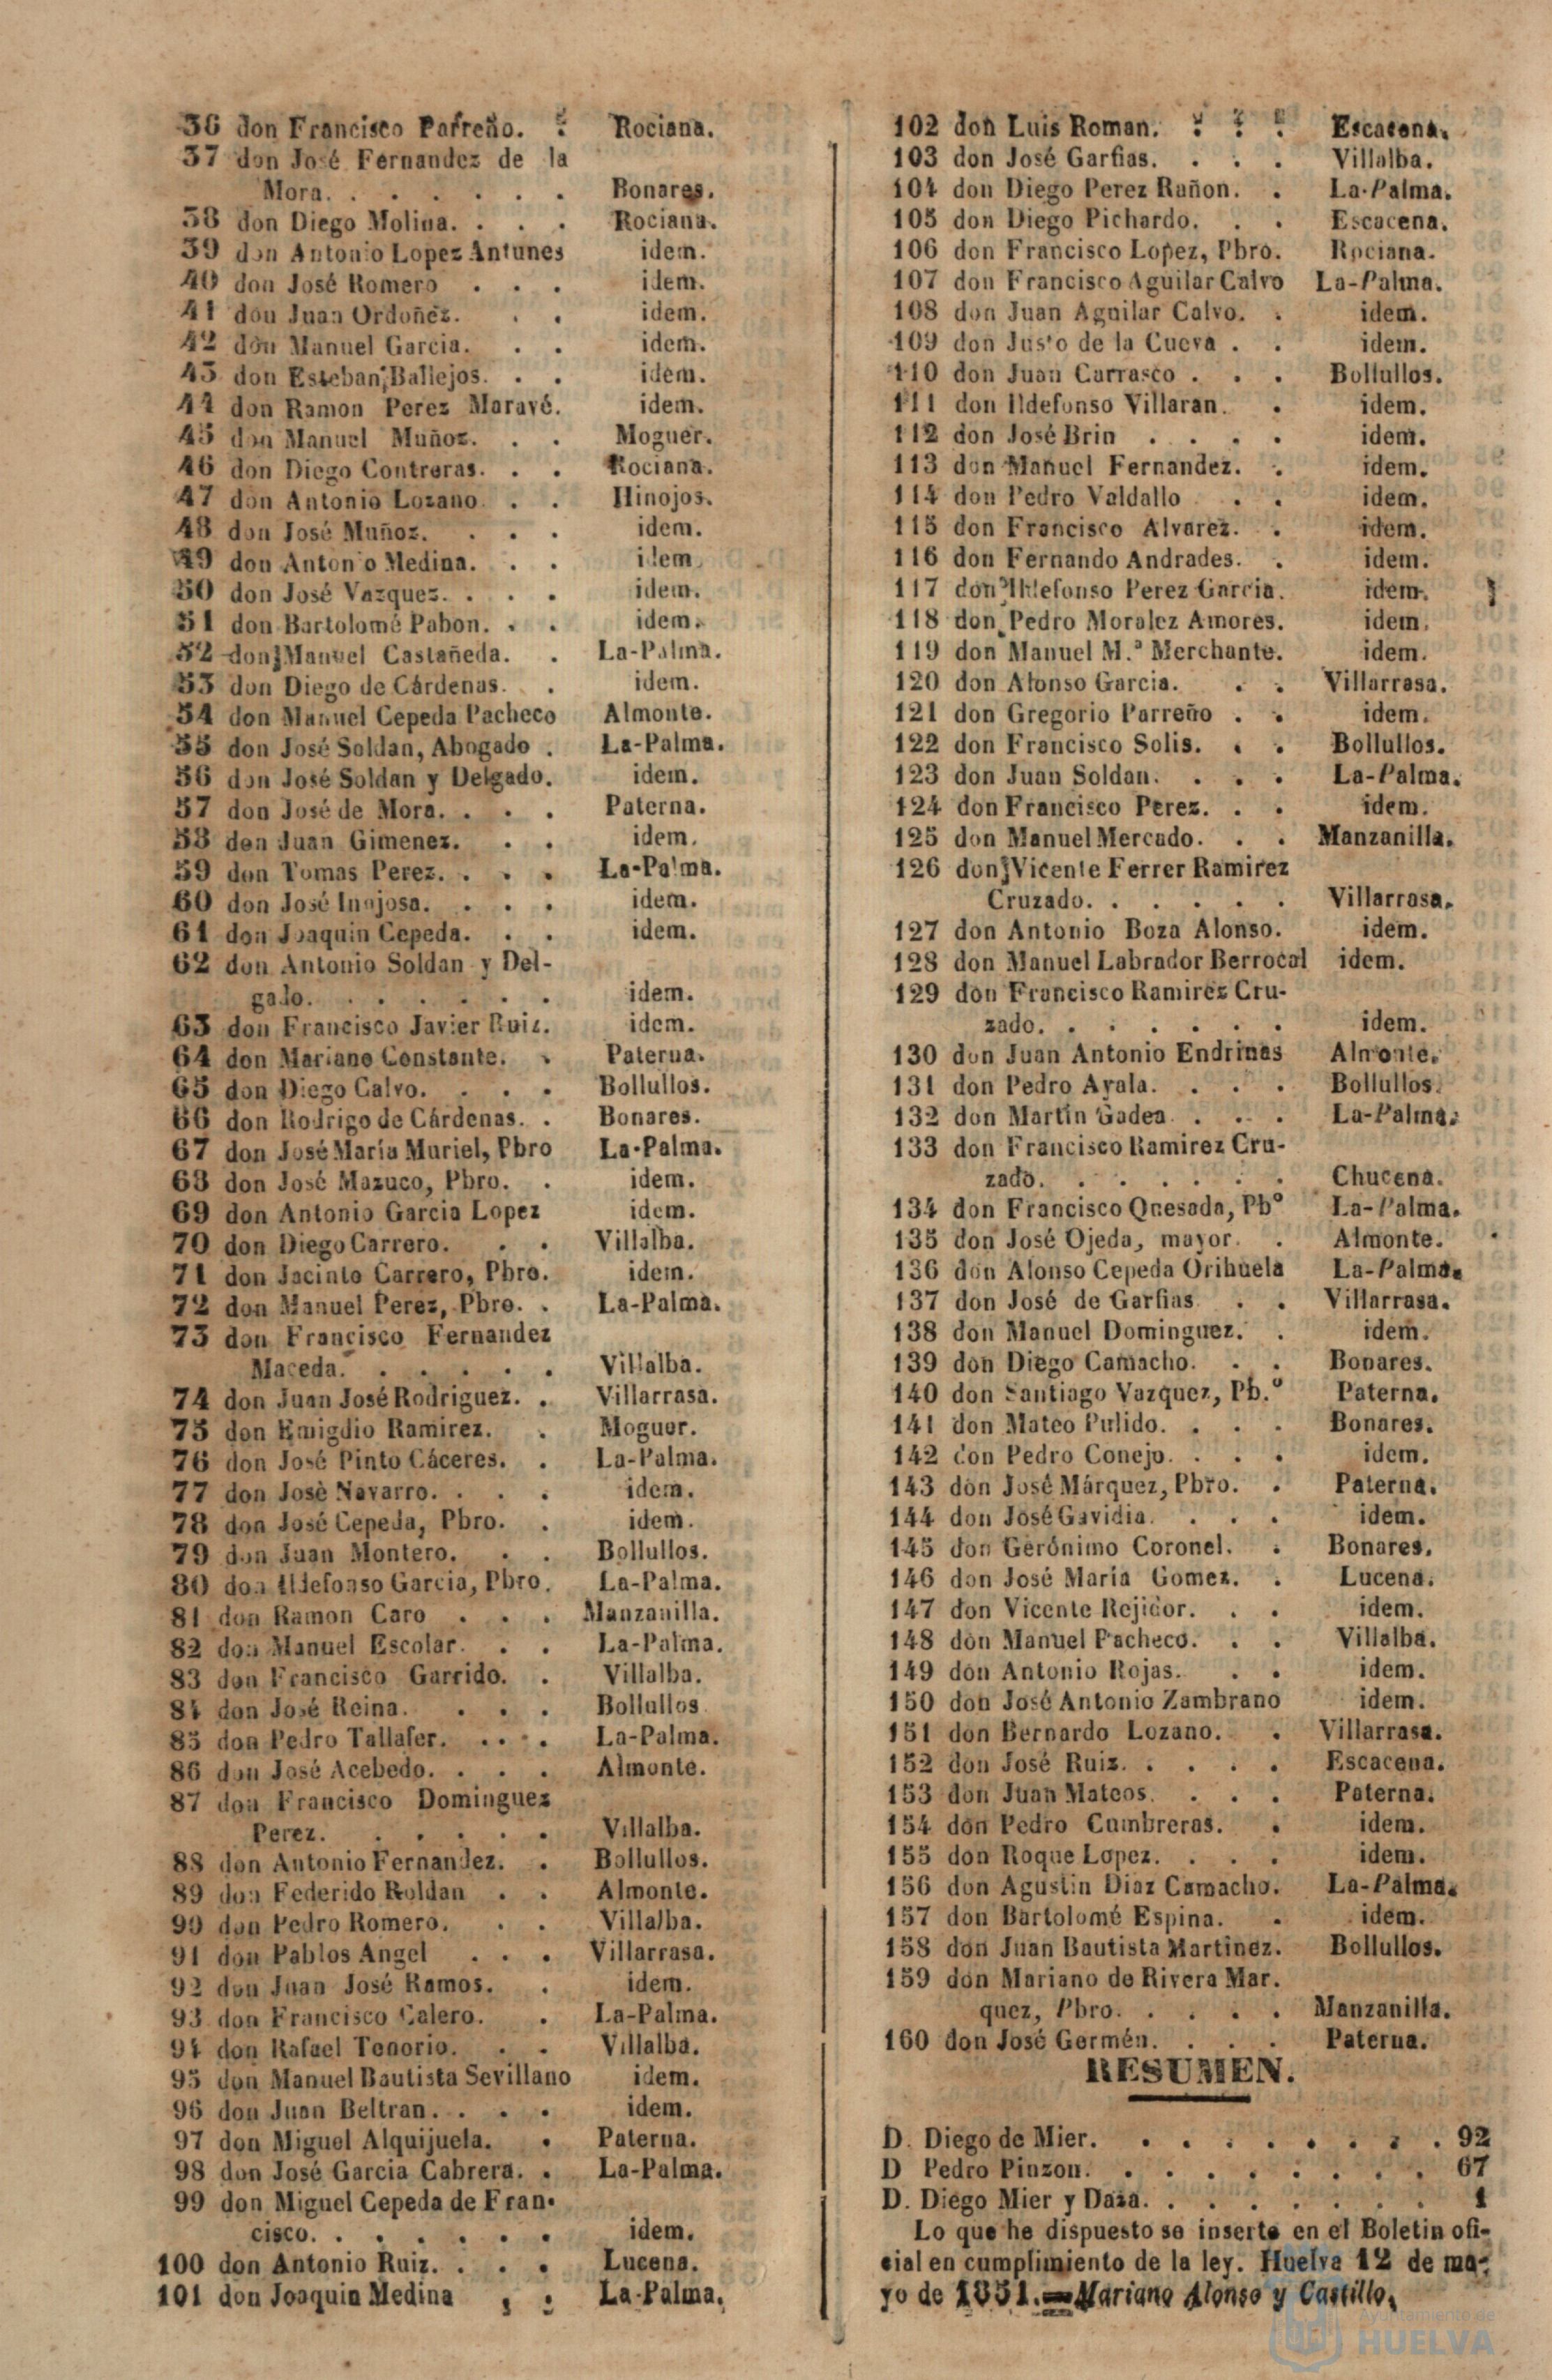 36 don Francisco Parreño. Rociana.
37 don José Fernandez de la
Mora. . . . . . . Bonares.
38 don Diego Molina. . . . Rociana.
39 don Antonio Lopez Antunes idem.
40 don José Romero . . . idem.
41 don Juan Ordoñez. . . idem.
42 don Manuel Garcia. . . idem.
43 don Esteban Ballejos. . . idem.
44 don Ramon Perez Maravé. idem.
45 don Manuel Muñoz. . . Moguer.
46 don Diego Contreras. . . Rociana.
47 don Antonio Lozano . . Hinojos.
48 don José Muñoz. . . . idem.
49 don Antonio Medina. . . idem
50 don José Vazquez. . . . idem.
51 don Bartolomé Pabon. . . idem.
52 don Manuel Castañeda. . La-Palma.
53 don Diego de Cárdenas. . idem.
54 don Manuel Cepeda Pacheco Almonte.
55 don José Soldan, Abogado . La-Palma.
56 don José Soldan y Delgado. idem.
57 don José de Mora. . . . Paterna.
58 don Juan Gimenez. . . idem.
59 don Tomas Perez. . . . La-Palma.
60 don José Inojosa. . . . idem.
61 don Joaquin Cepeda. . . idem.
62 don Antonio Soldan y Del-
gado. . . . . . . idem.
63 don Francisco Javier Ruiz. idem.
64 don Mariano Constante. . Paterna.
65 don Diego Calvo. . . . Bollullos.
66 don Rodrigo de Cárdenas. . Bonares.
67 don José María Muriel, Pbro La-Palma.
68 don José Mazuco, Pbro. . idem.
69 don Antonio Garcia Lopez idem.
70 don Diego Carrero. . . Villalba.
71 don Jacinto Carrero, Pbro. idem.
72 don Manuel Perez, Pbro. . La-Palma.
73 don Francisco Fernandez
Maceda. . . . . . Villalba.
74 don Juan José Rodriguez. . Villarrasa.
75 don Emigdio Ramirez. . Moguer.
76 don José Pinto Cáceres. . La-Palma.
77 don José Navarro. . . . idem.
78 don José Cepeda, Pbro. . idem.
79 don Juan Montero. . . Bollullos.
80 don Ildefonso Garcia, Pbro. La-Palma.
81 don Ramon Caro . . . Manzanilla.
82 don Manuel Escolar. . . La-Palma.
83 don Francisco Garrido. . Villalba.
84 don José Reina. . . . Bollullos
85 don Pedro Tallafer. . . . . La-Palma.
86 don José Acebedo. . . . Almonte.
87 don Francisco Dominguez
Perez. . . . . . Villalba.
88 don Antonio Fernandez. . Bollullos.
89 don Federido Roldan . . Almonte.
90 don Pedro Romero. . . Villalba.
91 don Pablos Angel . . . Villarrasa.
92 don Juan José Ramos. . idem.
93 don Francisco Calero. . La-Palma.
94 don Rafael Tenorio. . . Villalba.
95 don Manuel Bautista Sevillano idem.
96 don Juan Beltran. . . . idem.
97 don Miguel Alquijuela. . Paterna.
98 don José Garcia Cabrera. . La-Palma.
99 don Miguel Cepeda de Fran-
cisco. . . . . . . idem.
100 don Antonio Ruiz. . . . Lucena.
101 don Joaquin Medina . . La-Palma.
102 don Luis Roman. . . . Escacena.
103 don José Garfias. . . . Villalba.
104 don Diego Perez Rañon. . La-Palma.
105 don Diego Pichardo. . . Escacena.
106 don Francisco Lopez, Pbro. Rociana.
107 don Francisco Aguilar Calvo La-Palma.
108 don Juan Aguilar Calvo. . idem.
109 don Justo de la Cueva . . idem.
110 don Juan Carrasco . . . Bollullos.
111 don Ildefonso Villaran. . idem.
112 don José Brin . . . . idem.
113 don Manuel Fernandez. . idem.
114 don Pedro Valdallo . . idem.
115 don Francisco Alvarez. . idem.
116 don Fernando Andrades. . idem.
117 don Ildefonso Perez Garcia. idem.
118 don Pedro Moralez Amores. idem.
119 don Manuel M.ª Merchante. idem.
120 don Alonso Garcia. . . Villarrasa.
121 don Gregorio Parreño . . idem.
122 don Francisco Solis. . . Bollullos.
123 don Juan Soldan. . . . La-Palma.
124 don Francisco Perez. . . idem.
125 don Manuel Mercado. . . Manzanilla.
126 don Vicente Ferrer Ramirez
Cruzado. . . . . . Villarrasa.
127 don Antonio Boza Alonso. idem.
128 don Manuel Labrador Berrocal idem.
129 don Francisco Ramirez Cru-
zado. . . . . . . idem.
130 don Juan Antonio Endrinas Almonte.
131 don Pedro Ayala. . . . Bollullos.
132 don Martin Gadea . . . La-Palma.
133 don Francisco Ramirez Cru-
zado. . . . . . . Chucena.
134 don Francisco Quesada, Pbº La-Palma.
135 don José Ojeda, mayor. . Almonte.
136 don Alonso Cepeda Orihuela La-Palma.
137 don José de Garfias . . Villarrasa.
138 don Manuel Dominguez. . idem.
139 don Diego Camacho. . . Bonares.
140 don Santiago Vazquez, Pb.º Paterna.
141 don Mateo Pulido. . . . Bonares.
142 don Pedro Conejo. . . . idem.
143 don José Márquez, Pbro. . Paterna.
144 don José Gavidia. . . . idem.
145 don Gerónimo Coronel. . Bonares.
146 don José Maria Gomez. . Lucena.
147 don Vicente Rejidor. . . idem.
148 don Manuel Pacheco. . . Villalba.
149 don Antonio Rojas. . . idem.
150 don José Antonio Zambrano idem.
151 don Bernardo Lozano. . Villarrasa.
152 don José Ruiz. . . . . Escacena.
153 don Juan Mateos. . . . Paterna.
154 don Pedro Cumbreras. . idem.
155 don Roque Lopez. . . . idem.
156 don Agustin Diaz Camacho. La-Palma.
157 don Bartolomé Espina. . idem.
158 don Juan Bautista Martinez. Bollullos.
159 don Mariano de Rivera Mar.
quez, Pbro. . . . . Manzanilla.
160 don José Germén. . . . Paterna.
RESUMEN.
D. Diego de Mier. . . . . . . . . 92
D Pedro Pinzon. . . . . . . . . 67
D. Diego Mier y Daza. . . . . . . . 1
Lo que he dispuesto se inserte en el Boletin ofi-
cial en cumplimiento de la ley. Huelva 12 de ma-
yo de 1851.=Mariano Alonso y Castillo.
Ayuntamiento de
HUELVA